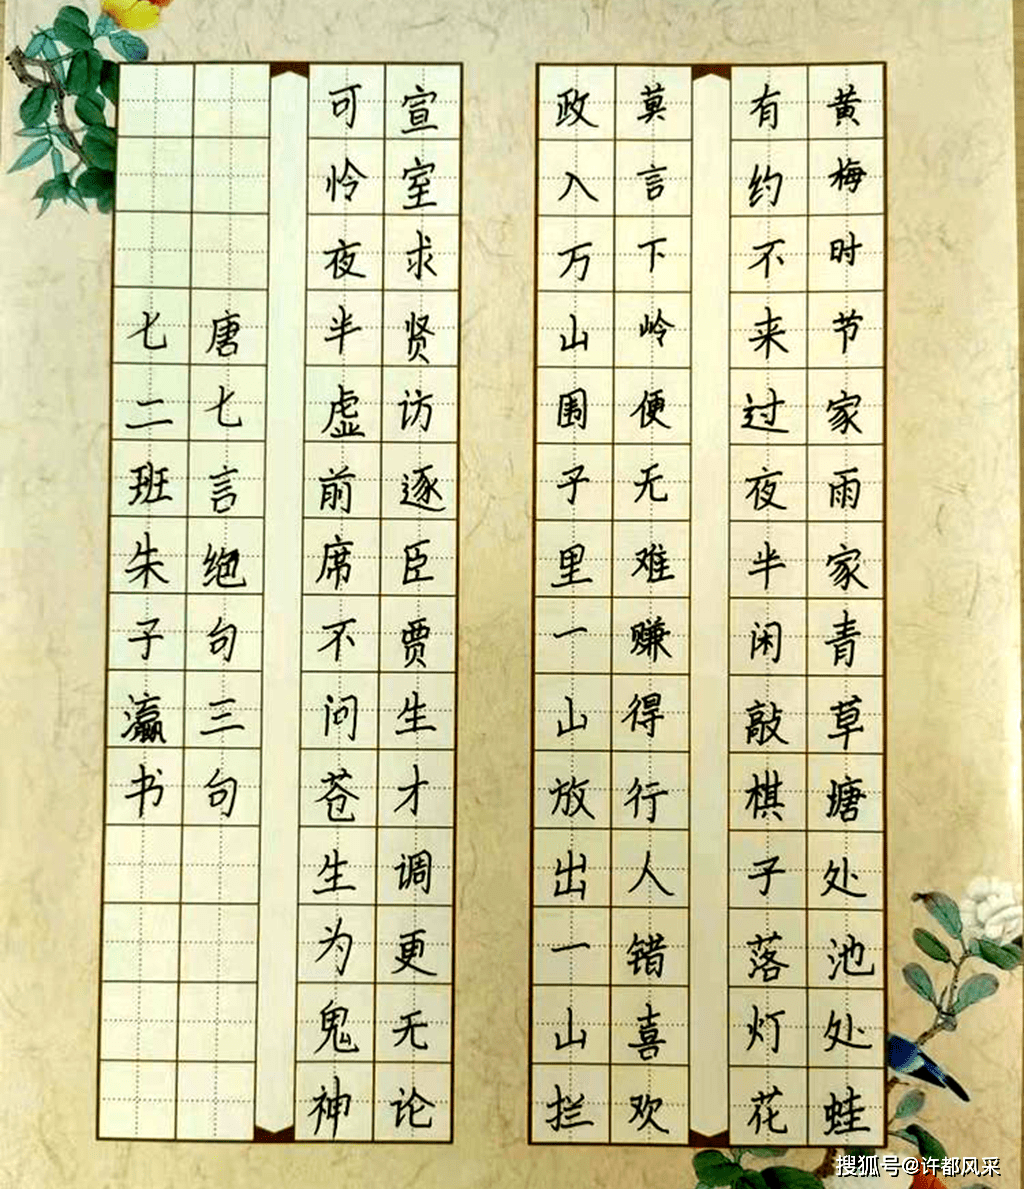 黄梅时节家雨家青草塘处池处蛙
有约不来过夜半闲敲棋子落灯花
莫言下岭便无难赚得行人错喜欢
政入万山围子里一山放出一山拦
宣室求贤访逐臣贾生才调更无论
可怜夜半虚前席不问苍生为鬼神
唐七言绝句三句
七二班朱子瀛书
搜狐号@许都风采